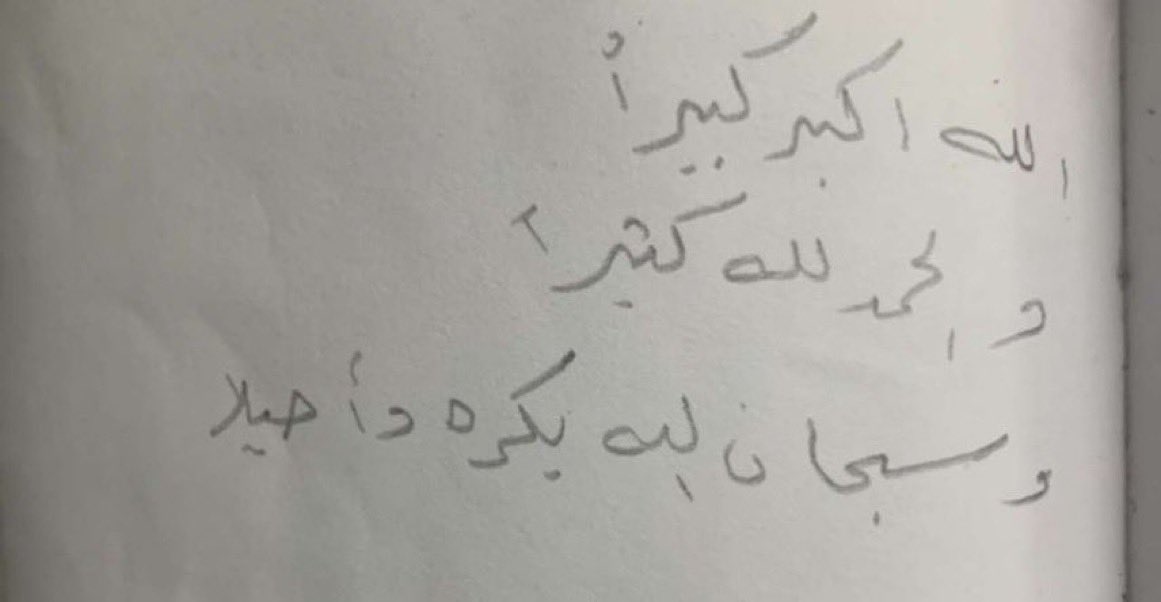 الله اكبر كبيرأ
و الحمد لله كثيرا
و سبحان الله بكره وأصيلا